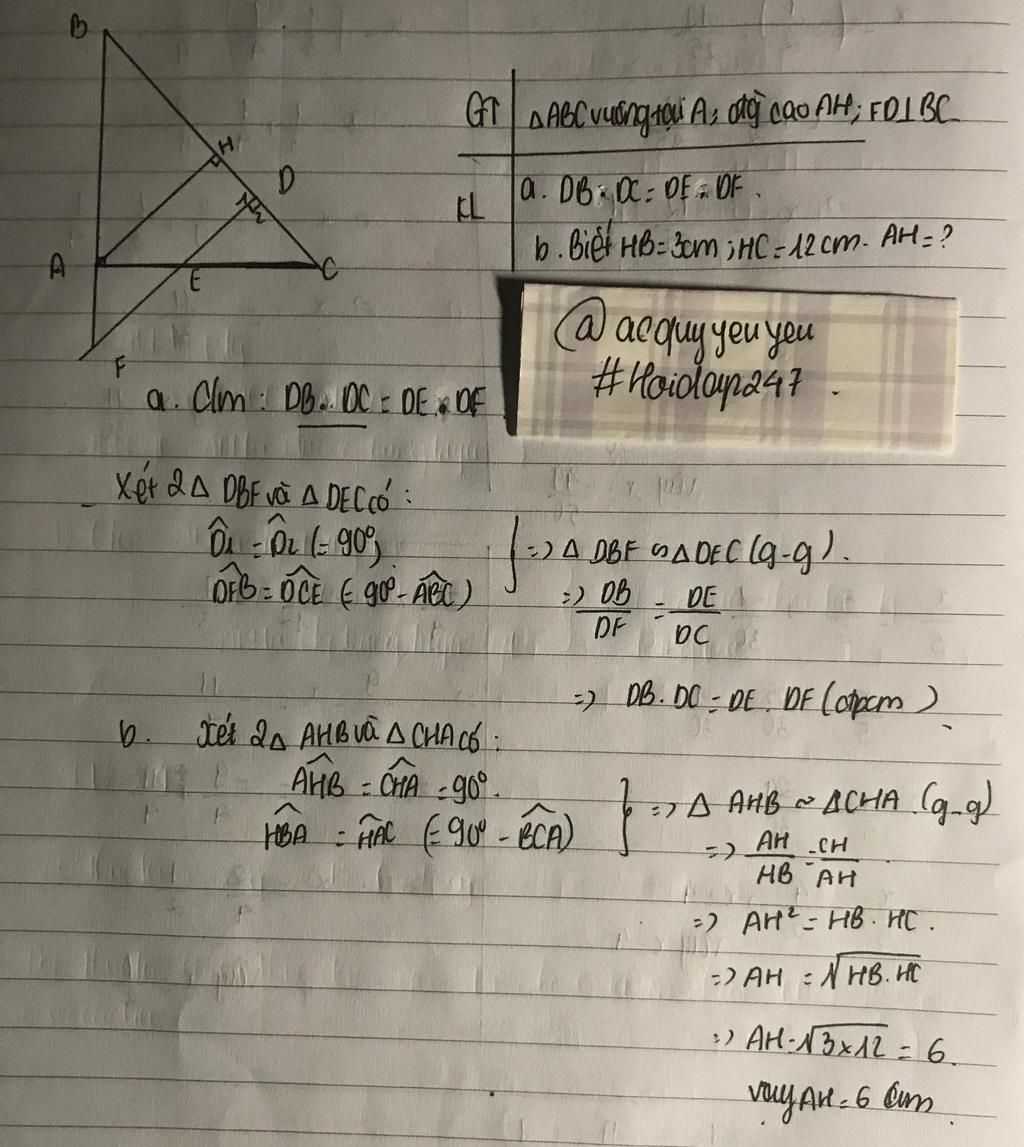 B
H
D
A
E
C
F
GT ΔABC vuông tại A; đg cao AH; FD⊥BC
KL a. DB . DC = DE . DF.
b. Biết HB = 3cm; HC = 12 cm. AH = ?
@acquyyeuyeu
#Hoidap247.
a. C/m: DB . DC = DE . DF
Xét 2Δ DBF và Δ DEC có:
D̂1 = D̂2 (= 90°)
DFB = DCE (= 90° - ABC)
=> Δ DBF ∽ Δ DEC (g-g).
=> DB/DF = DE/DC
=> DB . DC = DE . DF (đpcm)
b. Xét 2Δ AHB và Δ CHA có:
AHB = CHA = 90°.
HBA = HAC (= 90° - BCA)
=> Δ AHB ~ ΔCHA (g-g)
=> AH/HB = CH/AH
=> AH² = HB . HC.
=> AH = √HB. HC
=> AH = √3x12 = 6.
vậy AH = 6 cm